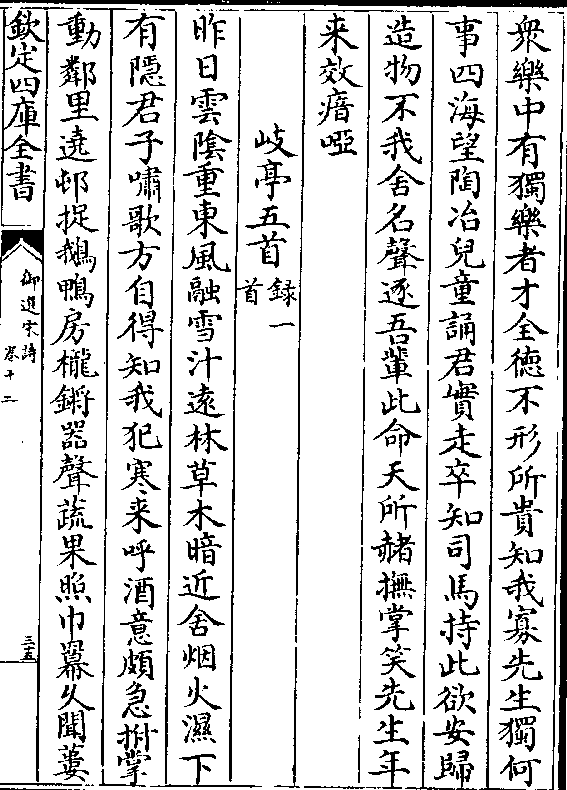 衆樂中有獨樂者才全德不形所貴知我寡先生獨何
事四海望陶冶兒童誦君實走卒知司馬持此欲安歸
造物不我舍名聲逐吾輩此命天所赭撫掌笑先生年
来效瘖啞
岐亭五首 録一首
昨日雲陰重東風融雪汁遠林草木暗近舍烟火濕下
有隱君子嘯歌方自得知我犯寒来呼酒意頗急拊掌
動鄰里遶邨捉鵝鴨房櫳鏘器聲蔬果照巾羃久聞蔞
欽定四庫全書
御選宋詩
卷十二
三五